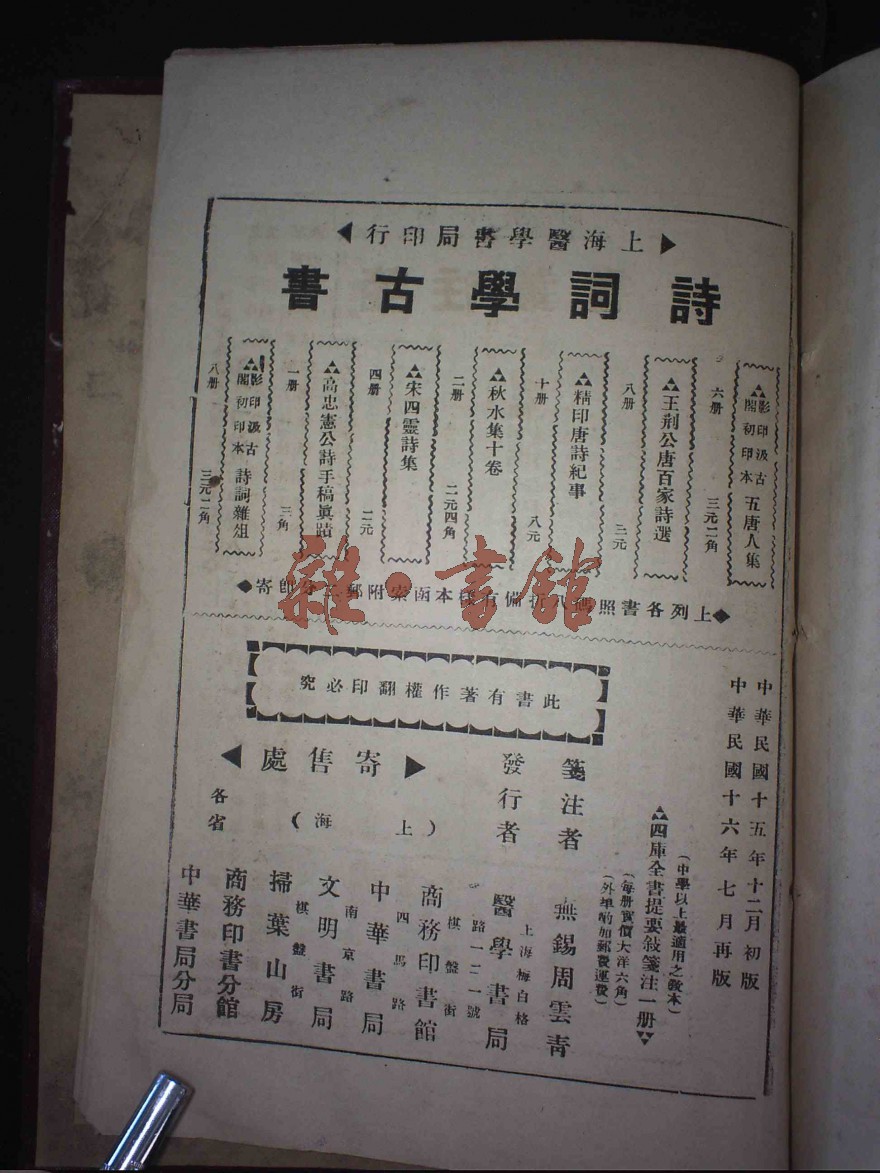 上海醫學書局印行
詩詞學古書
影印汲古閣初印本 五唐人集
六册 三元二角
王荆公唐百家詩選
八册 三元
精印唐詩紀事
十册 八元
秋水集十卷
二册 二元四角
宋四靈詩集
四册 二元
高忠憲公詩手稿眞蹟
一册 三角
影印汲古閣初印本 詩詞雜俎
八册 三元二角
◆上列各書照碼八折備有樣本函索附郵二分即寄◆
雜·書館
中華民國十五年十二月初版
中華民國十六年七月再版
四庫全書提要敍箋注一册
(中學以上最適用之敎本)
(每册實價大洋六角)
(外埠酌加郵費運費)
此書有著作權翻印必究
箋注者 無錫周雲靑
發行者 醫學書局
上海梅白格路一二一號
寄售處
(上海)
商務印書館 棋盤街
中華書局 四馬路
文明書局 南京路
掃葉山房 棋盤街
各省
商務印書分館
中華書局分局